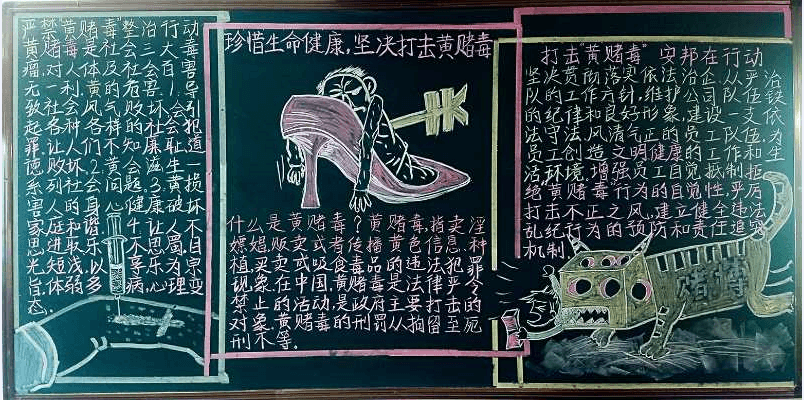 严禁"黄赌毒"整治行动
黄赌毒是社会三大毒
瘤,对人体及社会百害
无一利.黄的危害.1.导
致社会风气败坏,会引
起各种各样的社会犯
罪,让人们不知廉耻道
德败坏.2.黄会滋生一
系列社会问题.3.黄损
害人的身心健康破坏
家庭和谐
思进取乐
光短浅以
旨体弱多
态.
珍惜生命健康,坚决打击黄赌毒
什么是黄赌毒?黄赌毒,指卖淫
嫖娼,贩卖
植买卖或吸食毒品的违法犯罪
现象.在中国,黄毒
禁止的活动,是政府主要严令
对象.黄赌毒的刑罚从拘留至死
刑不等.
打击"黄赌毒" 安邦在行动
坚决贯彻落实依法治企从严治
队的工作方针,维护公司队伍铁
的纪律和良好形象,建设一支依
法守法,风清气正的员工队伍,为
员工创造文明健康的工作和生
活环境,增强员工自觉抵制拒
绝"黄赌毒"行为的自觉性,严厉
打击不正之风,建立健全违法
乱纪行为的预防和责任追究
机制.
赌博